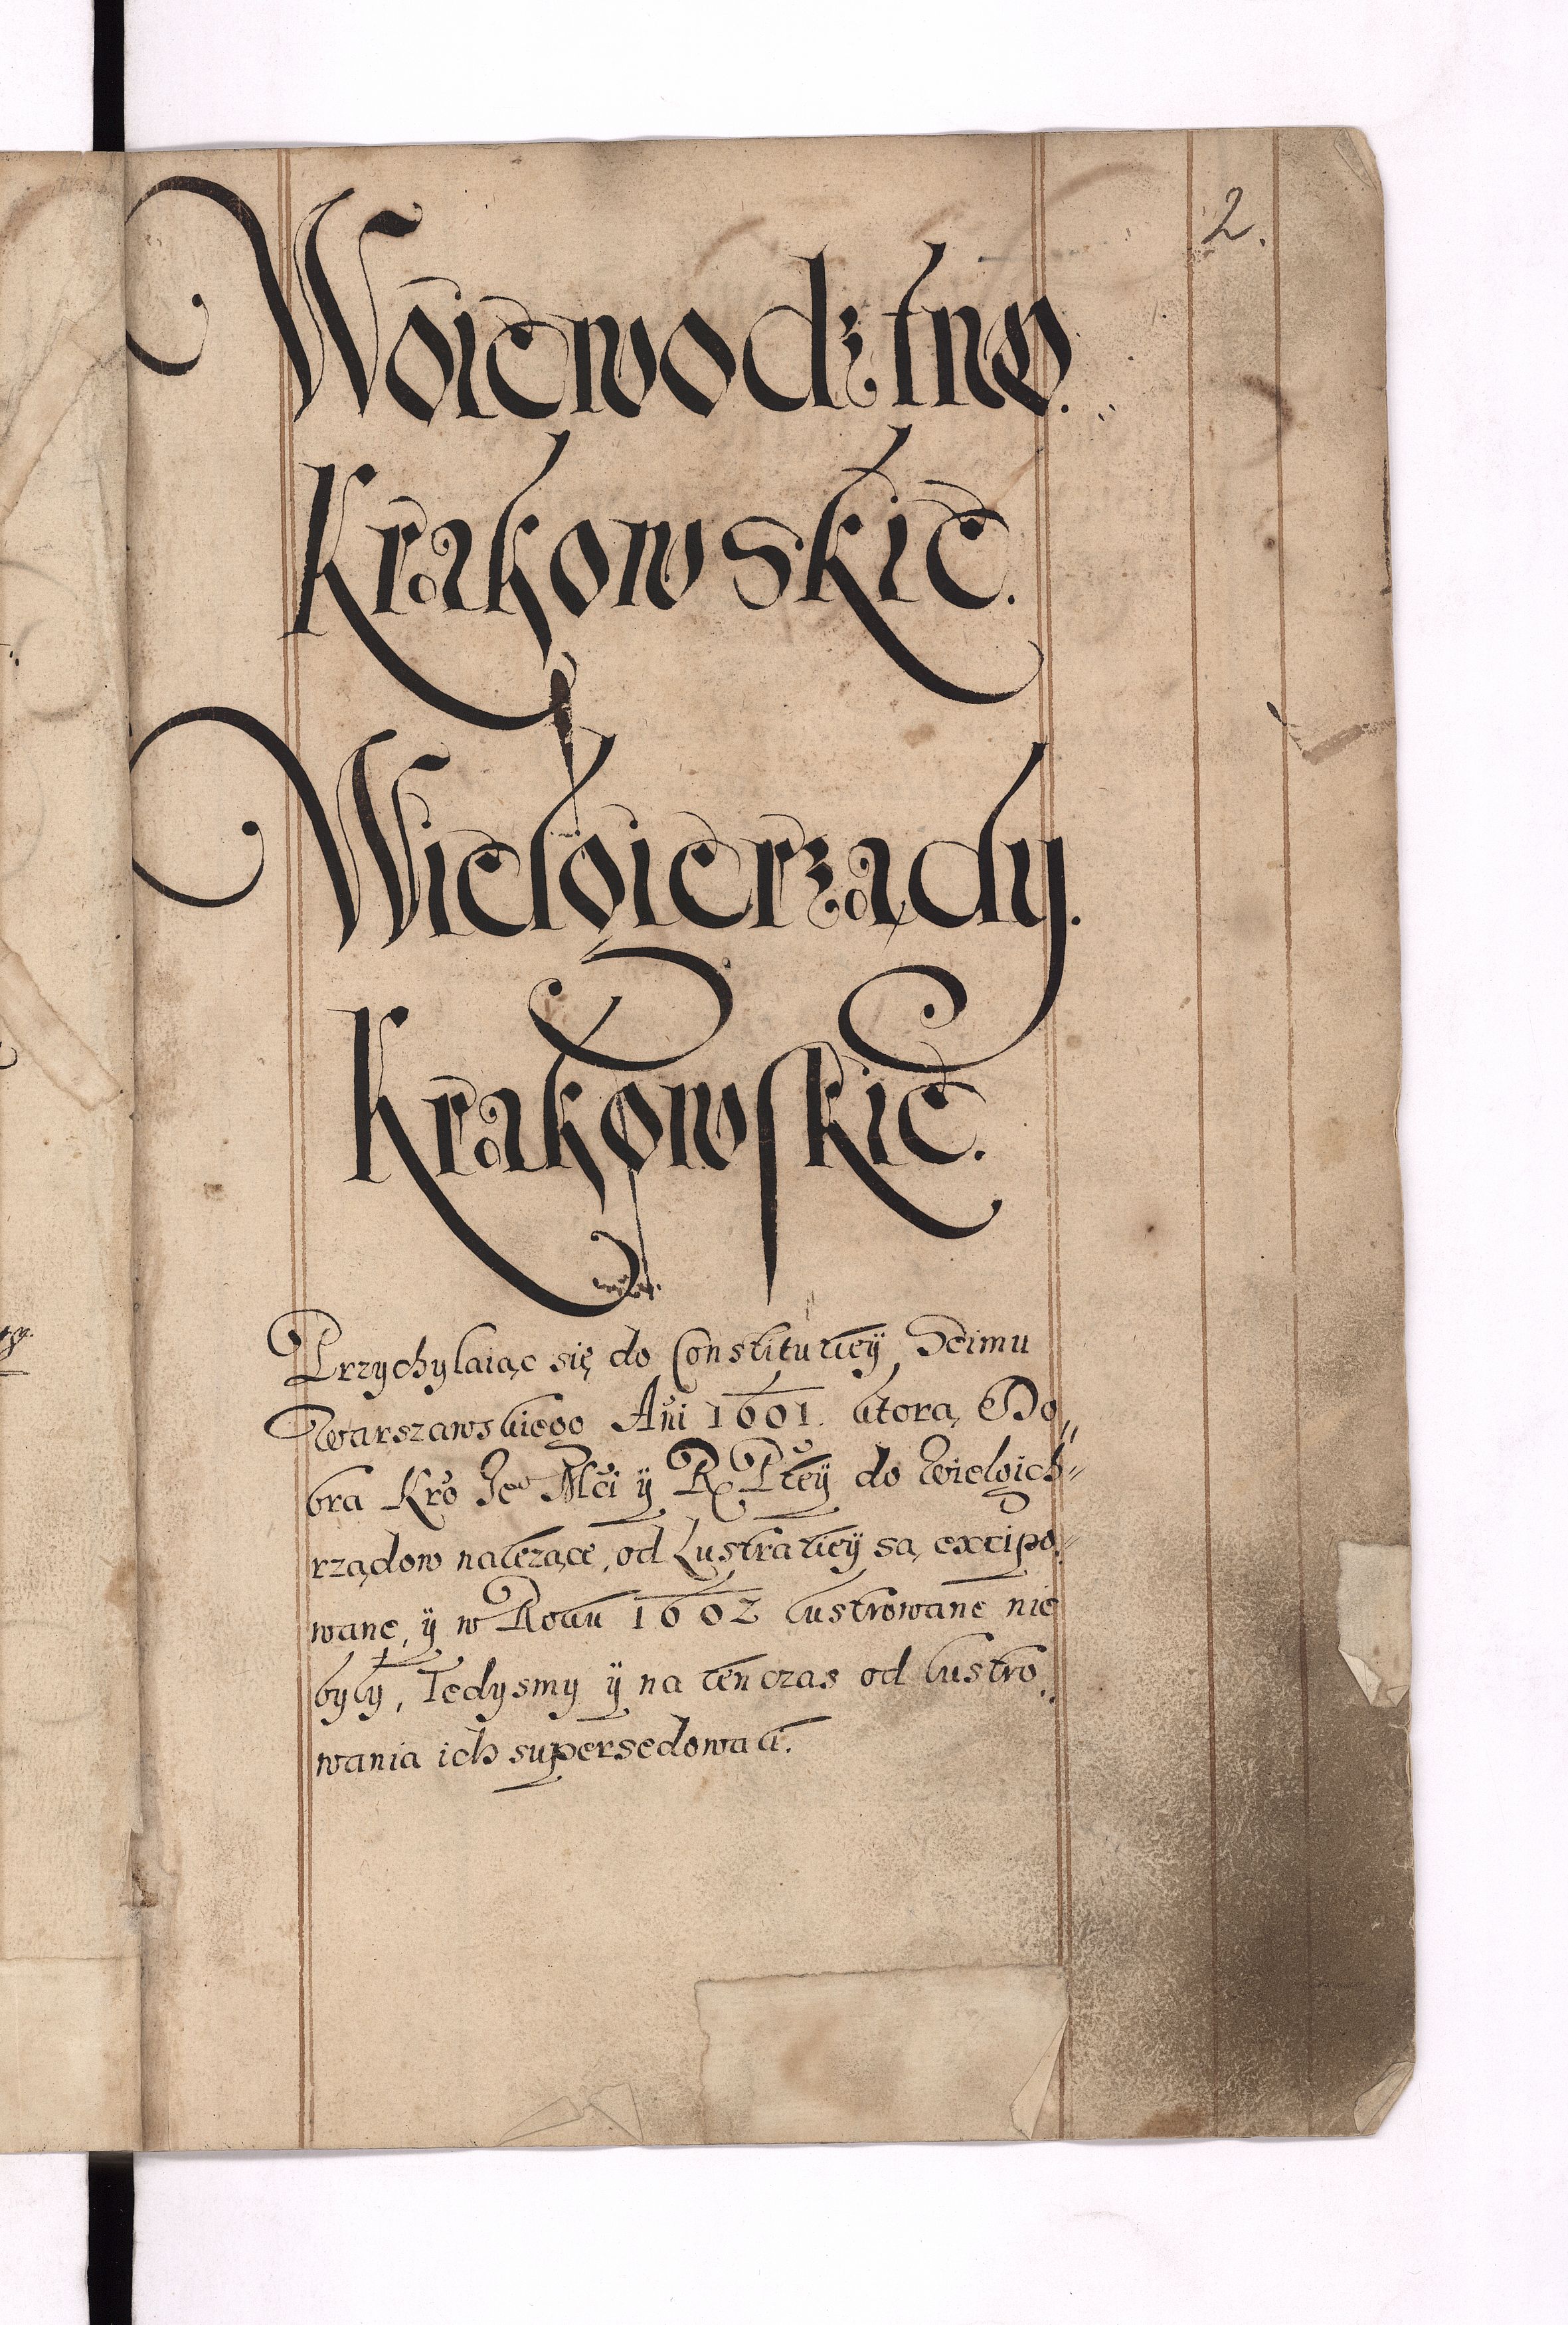 2.
Woiewodztwo.
Krakowskie.
Wielgierządy.
Krakowskie.
Przychylaiąc się do Constitutiey Seimu
Warszawskiego Ani 1601. ktorą Do„
bra Kro Je Mci ÿ R Pltey do Wielgich„
rządow nalezące, od Lustratiey są excipo„
wane, ÿ w Roku 1602 lustrowane nie
były, Tedysmy ÿ na ten czas od lustro„
wania ich supersedowali.